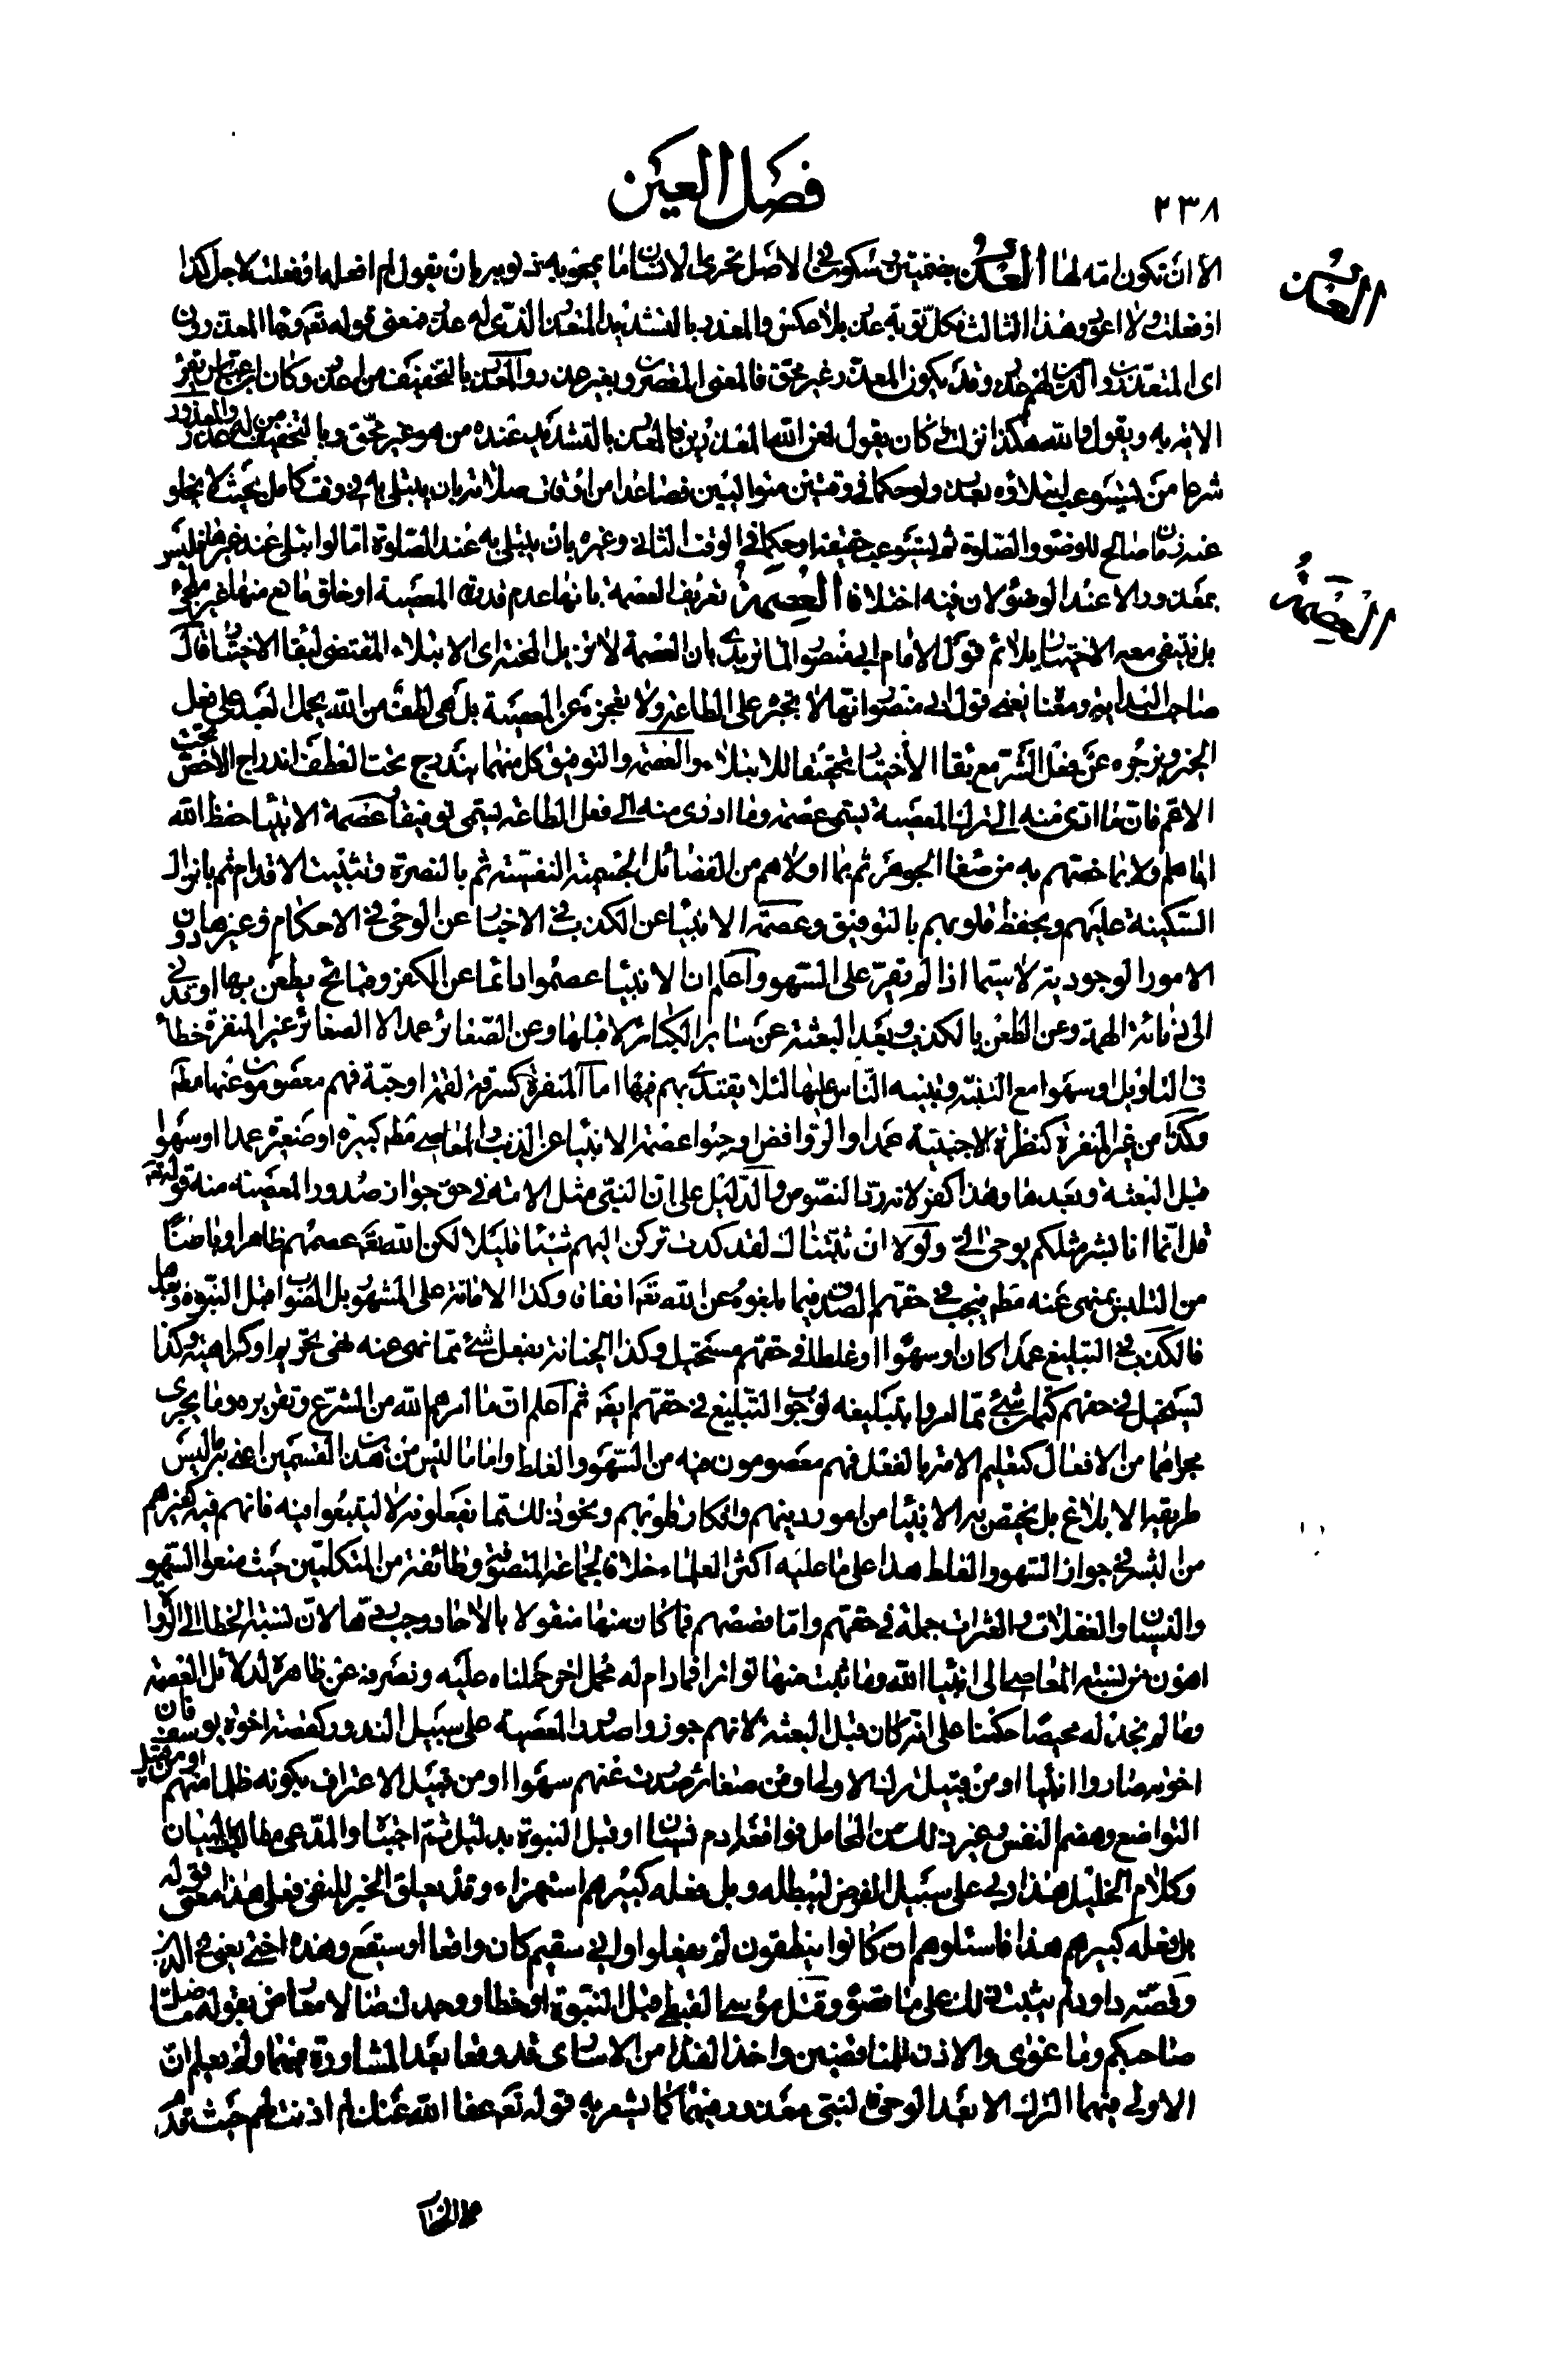 ٢٣٨
فصل العين
العذر
الا ان تكون امة لها العذر بضمتين وسكون في الاصل تحرى الانسان ما يمحو به ذنوبه بان يقول لم افعله او فعلت لاجل كذا
او فعلت ولا اعود وهذا الثالث فكل توبة عذر بلا عكس والمعذر بالتشديد المتعذر الذي له عذر فمعنى قوله تعم وجاء المعذرون
اى المتعذرون الذين لهم عذر وقد يكون المعذر غير محق فالمعنى المقصرون بغير عذر والمعذر بالتخفيف من اعذر وكان ابن عباس يقرء
الاية به ويقول والله هكذا نزلت كان يقول لعن الله المعذرين كان المعذر بالتشديد عنده من هو غير محق وبالتخفيف من له عذر والمعذور
شرعا من يستوعب ابتلاؤه بعذر ولو حكما في وقتين متواليين فصاعدا من اوقات صلاة بان يبتلى به في وقت كامل بحيث لا يخلو
عنه زمان صالح للوضوء والصلوة ثم يستوعب حقيقة او حكما في الوقت الثاني وغيره بان يبتلى به عند الصلوة اما لو ابتلى عند غيرها فليس
العصمة
بمعذور الا عند الوضوء لان فيه اختلافا العصمة تعريف العصمة بانها عدم قدرة المعصية او خلق مانع منها غير ملجئ
بل ينتفى معه الاختيار يلائم قول الامام ابى منصور الماتريدى بان العصمة لا تزيل المحنة اى الابتلاء المقتضى لبقاء الاختيار قال
صاحب البداية ومعنا يعنى قول ابى منصور انها لا تجبره على الطاعة ولا تعجزه عن المعصية بل هى لطف من الله يحمل العبد على فعل
الخير ويزجره عن فعل الشر مع بقاء الاختيار تحقيقا للابتلاء والعصمة والتوفيق كل منهما يندرج تحت العطف اندراج الاخص تحت
الاعم فان ما ادى منه الى ترك المعصية يسمى عصمة وما ادى منه الى فعل الطاعة يسمى توفيقا وعصمة الانبياء حفظ الله
اياهم اولا بما خصهم به من صفاء الجوهر ثم بما اولاهم من الفضائل الجسمية النفسية ثم بالنصرة وتثبيت الاقدام ثم بانزال
السكينة عليهم وبحفظ قلوبهم بالتوفيق وعصمة الانبياء عن الكذب في الاخبار عن الوحى في الاحكام وغيرها دون
الامور الوجودية لا سيما اذا لم يقر على السهو واعلم ان الانبياء عصموا دائما عن الكفر وقبائح يطعن بها او تدنى
الى دنائة الهمة وعن الطعن بالكذب وبعد البعثة عن سائر الكبائر لا قبلها وعن الصغائر عمدا لا الصغائر غير المنفرة خطأ
في التاويل او سهوا مع التنبه وينبه الناس عليها لئلا يقتدى بهم فيها اما المنفرة كسرقة لقمة او حبة فهم معصومون عنها مطم
وكذا من غير المنفرة كنظرة لاجنبية عمدا والروافض اوجبوا عصمة الانبياء عن الذنب والمعاصى مطم كبيرة او صغيرة عمدا او سهوا
قبل البعثة وبعدها وهذا كفر لانه رد النصوص والدليل على ان النبى مثل الامة في حق جواز صدور المعصية منه قوله تعم
قل انما انا بشر مثلكم يوحى الى ولولا ان ثبتناك لقد كدت تركن اليهم شيئا قليلا لكن الله تعم عصمهم ظاهرا وباطنا
من التلبس بمنهى عنه مطم فيجب في حقهم الصدق فيما بلغوه عن الله تعم اتفاقا وكذا الامانة على المشهور بل الصواب قبل النبوة وبعدها
فالكذب في التبليغ عمدا كان او سهوا او غلطا في حقهم مستحيل وكذا الخيانة بفعل شئ مما نهى عنه نهى تحريم او كراهية وكذا
يستحيل في حقهم كتمان شئ مما امروا بتبليغه لوجوب التبليغ في حقهم ايضا ثم اعلم ان ما امرهم الله من الشرع وتقريره وما يجرى
مجراهما من الافعال كتعليم الامة بالفعل فهم معصومون فيه من السهو والغلط واما ما ليس من هذين القسمين اعنى ما ليس
طريقه الابلاغ بل يختص به الانبياء من امور دينهم وافكار قلوبهم ونحو ذلك مما يفعلونه لا ليتبعوا فيه فانهم فيه كغيرهم
من البشر في جواز السهو والغلط هذا على ما عليه اكثر العلماء خلافا لجماعة المتصوفة وطائفة من المتكلمين حيث منعوا السهو
والنسيان والغفلات والفترات جملة في حقهم واما قصصهم فما كان منها منقولا بالآحاد وجب ردها لان نسبة الخطا الى الرواة
اهون من نسبة المعاصى الى انبياء الله وما ثبت منها تواترا فما دام له محمل اخر حملناه عليه ونصرفه عن ظاهره لدلائل العصمة
وما لم نجد له محيصا حكمنا على انه كان قبل البعثة لانهم جوزوا صدور المعصية على سبيل الندور كقصة اخوة يوسف فان
اخوته صاروا انبياء او من قبيل ترك الاولى او من صغائر صدرت عنهم سهوا او من قبيل الاعتراف بكونه ظلما منهم او من قبيل
التواضع وهضم النفس وغير ذلك من المحامل فواقعة ادم نسيان او قبل النبوة بدليل ثم اجتباه والمدعى مطالب بالبيان
وكلام الخليل هذا ربى على سبيل الفرض ليبطله وبل فعله كبيرهم استهزاء وقد يعلق الخبر للنفى فعلى هذا معنى قوله
بل فعله كبيرهم هذا فاسئلوهم ان كانوا ينطقون لم يفعلوا وانى سقيم كان واقعا او سيقع وهذه اختى يعنى في الدين
وقصة داود لم يثبت ذلك على ما قصوه وقتل موسى القبطى قبل النبوة او خطا ووجدك ضالا معارض بقوله ما ضل
صاحبكم وما غوى والاذن للمنافقين واخذ الفداء من الاسارى قد وقعا بعد المشاورة فيهما ولم يعلم ان
الاولى فيهما الترك الا بعد الوحى فالنبى معذور فيهما كما يشعر به قوله تعم عفا الله عنك لم اذنت لهم حيث قدم